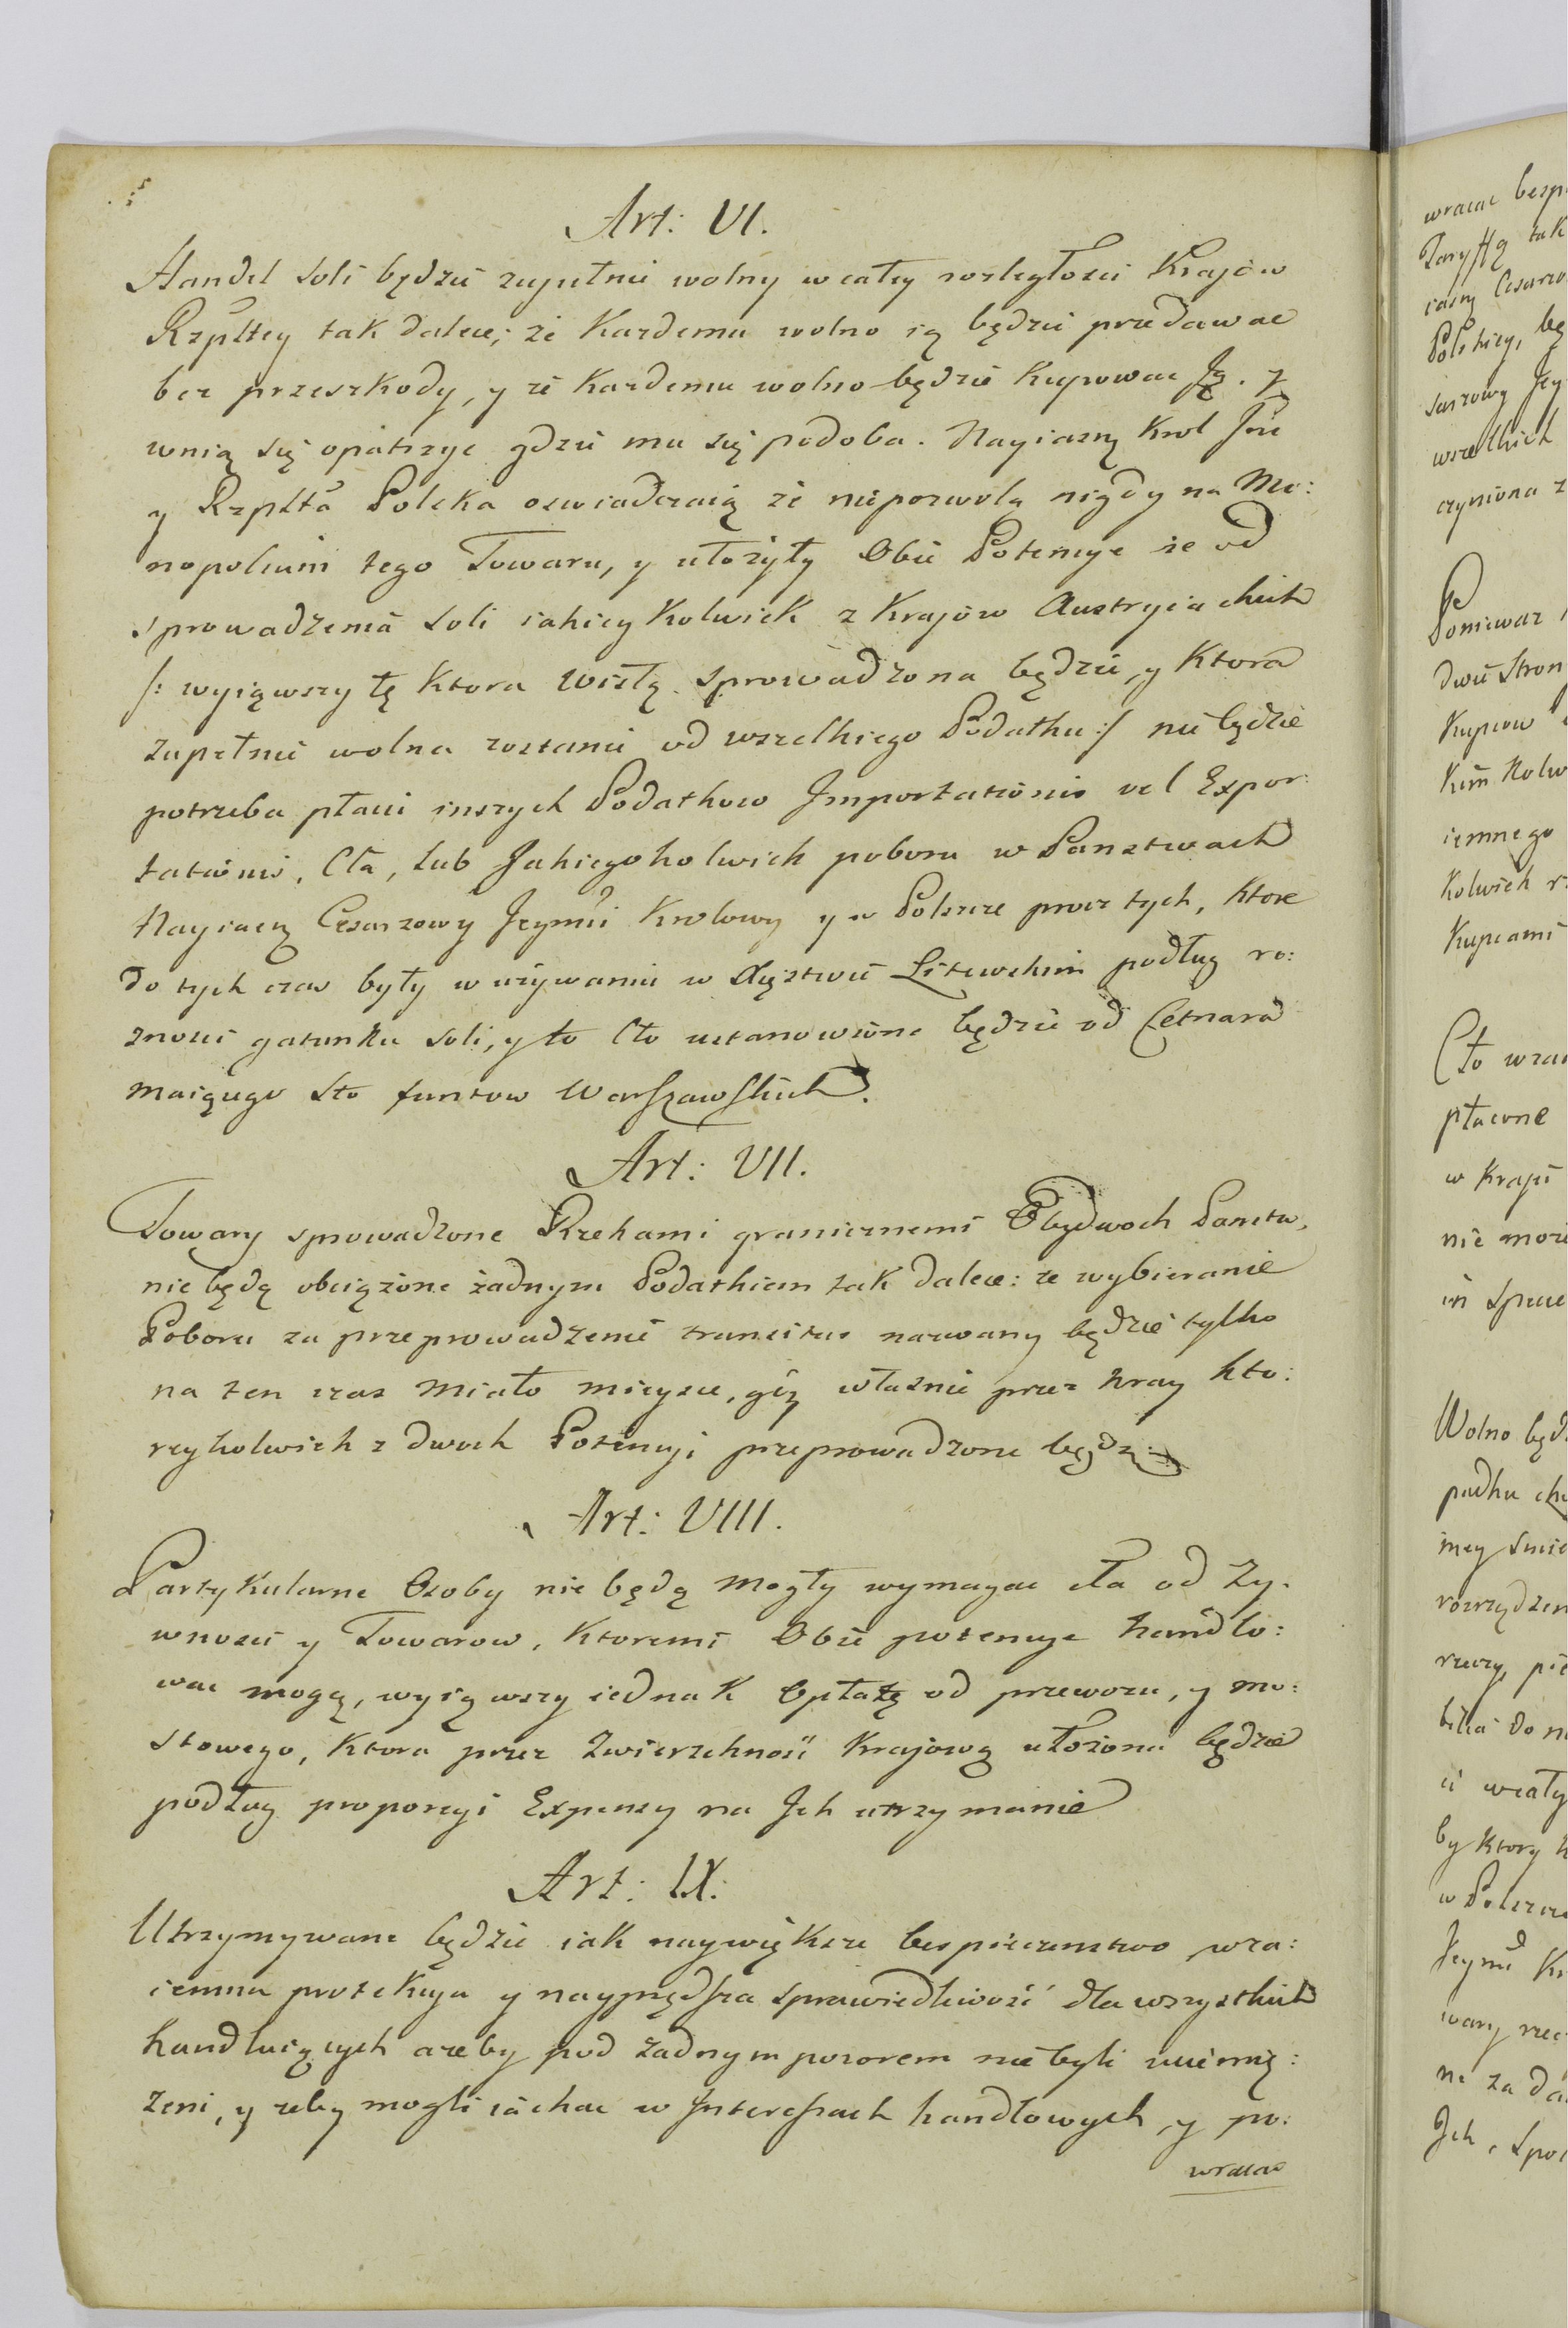 Art: VI.
Handel Soli będzie zupełnie wolny w całey rozległosci Krajów
Rzpltey tak dalece; że Kazdemu wolno ią będzie przedawac
bez przeszkody, y że Kazdemu wolno będzie Kupowac Ją. y
wnią się opatrzyc gdzie mu się podoba. Nayiasny Krol Jmć
y Rzplta Polska oswiadczaią że niepozwolą nigdy na Mo:
nopolium tego Towaru, y ułożyły Obie Potencye że od
sprowadzenia Soli iakieykolwiek z Krajów Austryiackich
/: wyiąwszy tę Ktora Wisłą sprowadzona będzie, y Ktora
zupełnie wolna zostanie od wszelkiego Podatku :/ nie będzie
potrzeba płacic inszych Podatkow Importationis vel Expor:
tationis, Cła, lub Jakiegokolwiek poboru w Panstwach
Nayiasny Cesarzowy Jeymci Krolowy y w Polszcze procz tych, Ktore
do tych czas były w używaniu w Xięstwie Litewskim podług ro:
znosci gatunku Soli, y to Cło ustanowione będzie od Cetnara
maiącego Sto funtow Warszawskich.
Art: VII.
Towary sprowadzone Rzekami granicznemi Obydwoch Panstw,
nie będą obciążone żadnym Podatkiem tak dalece: że wybieranie
Poboru za przeprowadzenie transitus nazwany będzie tylko
na ten czas miało mieysce, gdy własnie przez Kray kto:
reykolwiek z dwoch Potencyi przeprowadzone będą.
Art: VIII.
Partykularne Osoby nie będą mogły wymagac cła od Zy:
wnosci y Towarow, Ktoremi Obie potencye handlo:
wac mogą, wyiąwszy iednak Opłatę od przewozu, y mo:
stowego, Ktora przez Zwierzchność Krajową ułożona będzie
podług proporcyi Expensy na Jch utrzymanie
Art: IX:
Utrzymywane będzie iak naywiększe bespieczenstwo wza:
iemna protekcya y nayprędsza sprawiedliwość dla wszystkich
handluiących azeby pod żadnym pozorem nie byli uciemię:
żeni, y zeby mogli iachac w Interessach handlowych, y po:
wracac